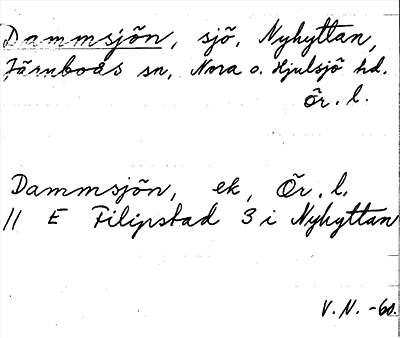 Dammsjön, sjö, Nyhyttan,
Järnboås sn, Nora o. Hjulsjö hd.
Ör. l.
Dammsjön, ek, Ör. l.
11 E Filipstad 3 i Nyhyttan
V. N. -60.